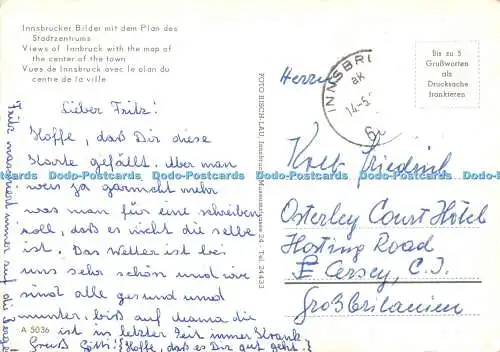 Innsbrucker Bilder mit dem Plan des
Stadtzentrums
Views of Innbruck with the map of
the center of the town
Vues de Innsbruck avec le plan du
centre de la ville
Lieber Fritz!
Hoffe, daß Dir diese
Karte gefällt. Aber man
weis ja garnicht mehr
was man für eine schreiben
soll, daß es nicht die selbe
ist. Das Wetter ist bei
uns sehr schön und wir
sind alle gesund und
munter, bis auf Mama die
ist in letzter Zeit immer krank.
Gruß Götti! (Hoffe, daß es Dir gut geht.)
Fritz marschiert immer auf die Berge
A 5036
FOTO RISCH-LAU, Innsbruck, Museumstrasse 24 - Tel. 24433
INNSBRU
aK
14-5.
6i
Bis zu 5
Grußworten
als
Drucksache
frankieren.
Herrn
Kolb Friedrich
Osterley Court Hotel
Hosting Road
Cersey, C.I.
Großbritanien
Dodo-Postcards Dodo-Postcards Dodo-Postcards Dodo-Postcards Dodo-Postcards